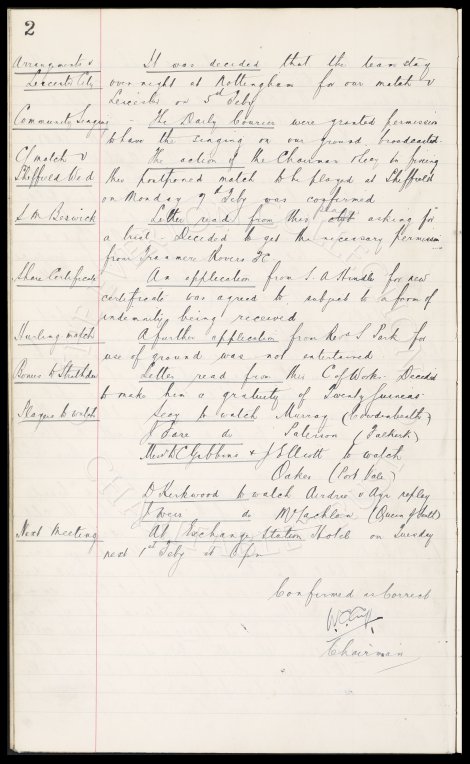 2
Arrangements v It was decided that the team stay
Leicester City over night at Nottingham for our match v
Leicester on 5th Feby
Community Singing - The Daily Courier were granted permission
to have the singing on our ground broadcasted.
C/ match v The action of the Chairman & Secy in fixing
Sheffield Utd this postponed match to be played at Sheffield
on Monday 7th Feby was confirmed
S. M. Beswick Letter read from this asking for
a trial. Decided to get the necessary permission
from Tranmere Rovers FC
Share Certificate An application from S. A. Hindle for new
certificate was agreed to, subject to a form of
indemnity being received
Hurling match A further application from Revd S Park for
use of ground was not entertained
Bonus to Letter read from this C. of Works. Decided
to make him a gratuity of Twenty Guineas.
Players to watch Secy to watch Murray (Cowdenbeath)
J Fare do Paterson (Falkirk)
Messrs W C Gibbins & J Elliott to watch
Oakes (Port Vale)
D Kirkwood to watch Airdrie v Ayr replay
J Weir do McLachlan (Queen of South)
Next Meeting At Exchange Station Hotel on Tuesday
next 1st Feby at 6 pm
Confirmed as Correct
W. C. Cuff
Chairman